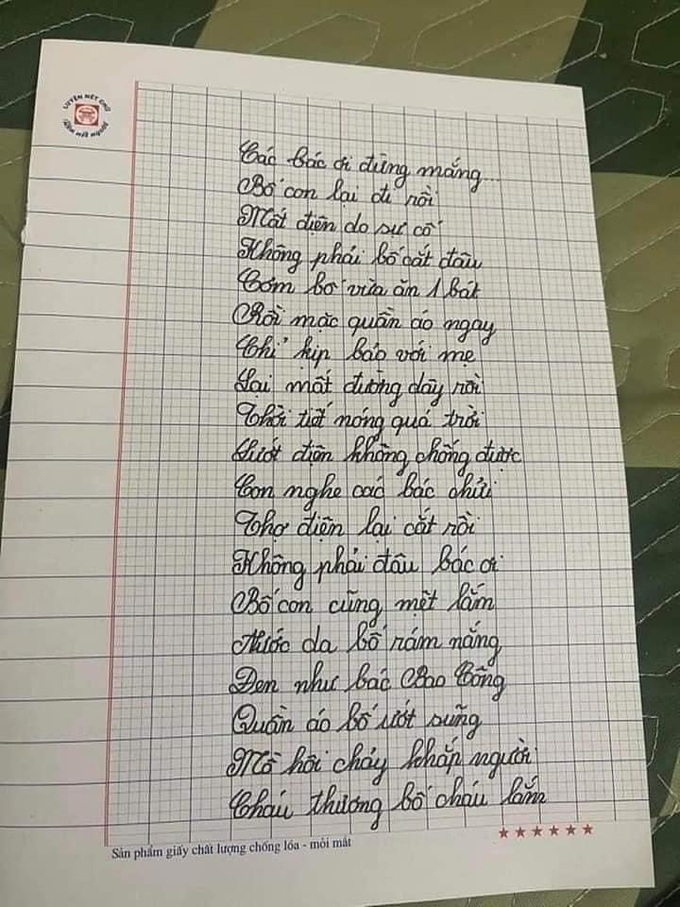 LUYỆN NÉT CHỮ
RÈN NẾT NGƯỜI
Các bác ơi đừng mắng...
Bố con lại đi rồi
Mất điện do sự cố
Không phải bố cắt đâu
Cơm bố vừa ăn 1 bát
Rồi mặc quần áo ngay
Chỉ kịp bảo với mẹ
Lại mất đường dây rồi
Thời tiết nóng quá trời
Lưới điện không chống được
Con nghe các bác chửi
Thợ điện lại cắt rồi
Không phải đâu bác ơi
Bố con cũng mệt lắm
Nước da bố rám nắng
Đen như bác Bao Công
Quần áo bố ướt sũng
Mồ hôi chảy khắp người
Cháu thương bố cháu lắm
Sản phẩm giấy chất lượng chống lóa - mỏi mắt